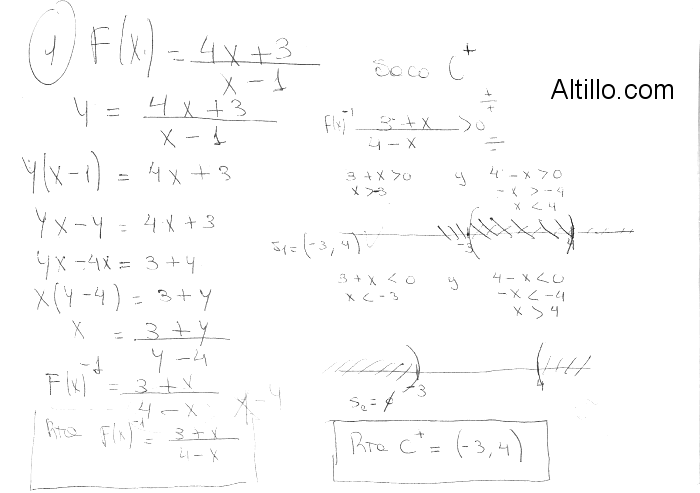 1 F(x) = 4x + 3 / x - 1
y = 4x + 3 / x - 1
y(x - 1) = 4x + 3
yx - y = 4x + 3
yx - 4x = 3 + y
x(y - 4) = 3 + y
x = 3 + y / y - 4
F(x)⁻¹ = 3 + x / 4 - x
x - 4
Rta F(x)⁻¹ = 3 + x / 4 - x
saco C⁺
Altillo.com
F(x)⁻¹ 3 + x / 4 - x > 0 + / + - / -
3 + x > 0 y 4 - x > 0
x > 3 - x > - 4
x < 4
-3 4
S1 = (-3, 4)
3 + x < 0 y 4 - x < 0
x < -3 - x < - 4
x > 4
-3 4
S2 = ∅
Rta C⁺ = (-3, 4)